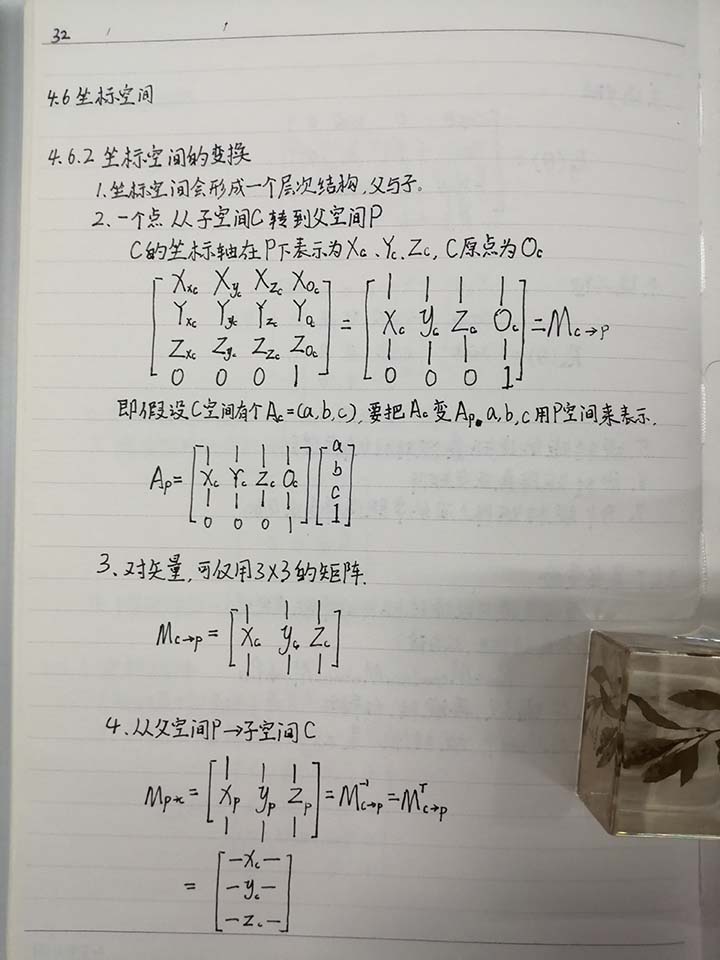 32
4.6 坐标空间
4.6.2 坐标空间的变换
1. 坐标空间会形成一个层次结构,父与子。
2、一个点从子空间C转到父空间P
C的坐标轴在P下表示为Xc、Yc、Zc, C原点为Oc
[ Xxc Xyc Xzc XOc ] [ | | | | ]
[ Yxc Yyc Yzc YOc ] = [ Xc yc Zc Oc ] = Mc→p
[ Zxc Zyc Zzc ZOc ] [ | | | | ]
[ 0 0 0 1 ] [ 0 0 0 1 ]
即假设C空间有个Ac=(a,b,c), 要把Ac变Ap。a,b,c用P空间来表示.
[ | | | | ] [ a ]
Ap= [ Xc Yc Zc Oc ] [ b ]
[ | | | | ] [ c ]
[ 0 0 0 1 ] [ 1 ]
3、对矢量,可仅用3X3的矩阵.
[ | | | ]
Mc→p = [ Xc yc Zc ]
[ | | | ]
4、从父空间P→子空间C
[ | | | ]
Mp→c = [ Xp yp Zp ] = M⁻¹c→p = Mᵀc→p
[ | | | ]
[ —Xc— ]
= [ —yc— ]
[ —Zc— ]